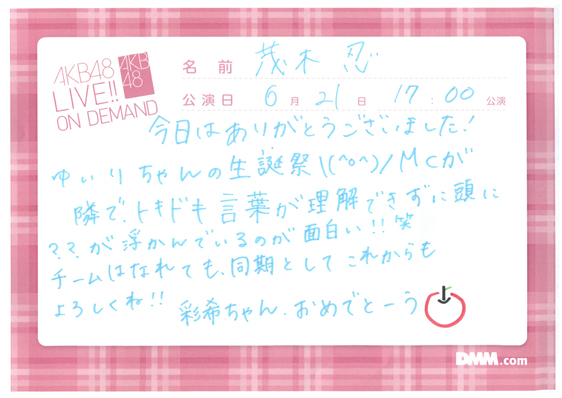 AKB48
LIVE!!
ON DEMAND
AKB
48
名前 茂木 忍
公演日 6月21日 17:00公演
今日はありがとうございました!
ゆいりちゃんの生誕祭\(^o^)/MCが
隣で、トキドキ言葉が理解できずに頭に
??が浮かんでいるのが面白い!!笑
チームはなれても、同期としてこれからも
よろしくね!!
彩希ちゃん、おめでとーう
DMM.com